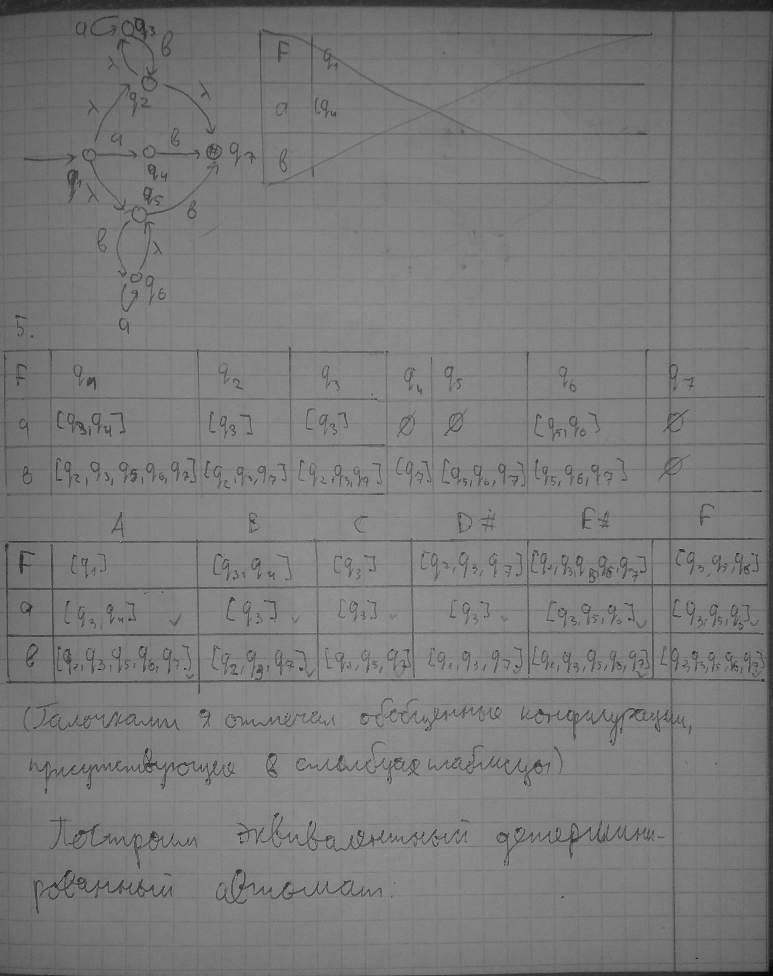 a q3 в
λ
q2 λ
λ
a в
q1 q4 q7
λ q5
в в λ
q6
a
F q1
a [q4
в
5.
F q1 q2 q3 q4 q5 q6 q7
a [q3,q4] [q3] [q3] ∅ ∅ [q5,q6] ∅
в [q2,q3,q5,q6,q7] [q2,q3,q7] [q2,q3,q7] [q7] [q5,q6,q7] [q5,q6,q7] ∅
A B C D# E# F
F [q1] [q3,q4] [q3] [q2,q3,q7] [q2,q3,q5,q6,q7] [q3,q5,q6]
a [q3,q4] [q3] [q3] [q3] [q3,q5,q6] [q3,q5,q6]
в [q2,q3,q5,q6,q7] [q2,q3,q7] [q2,q3,q7] [q2,q3,q7] [q2,q3,q5,q6,q7] [q2,q3,q5,q6,q7]
(Галочками я отмечал обобщенные конфигурации,
присутствующие в столбцах таблицы)
Построим эквивалентный детермини-
рованный автомат: